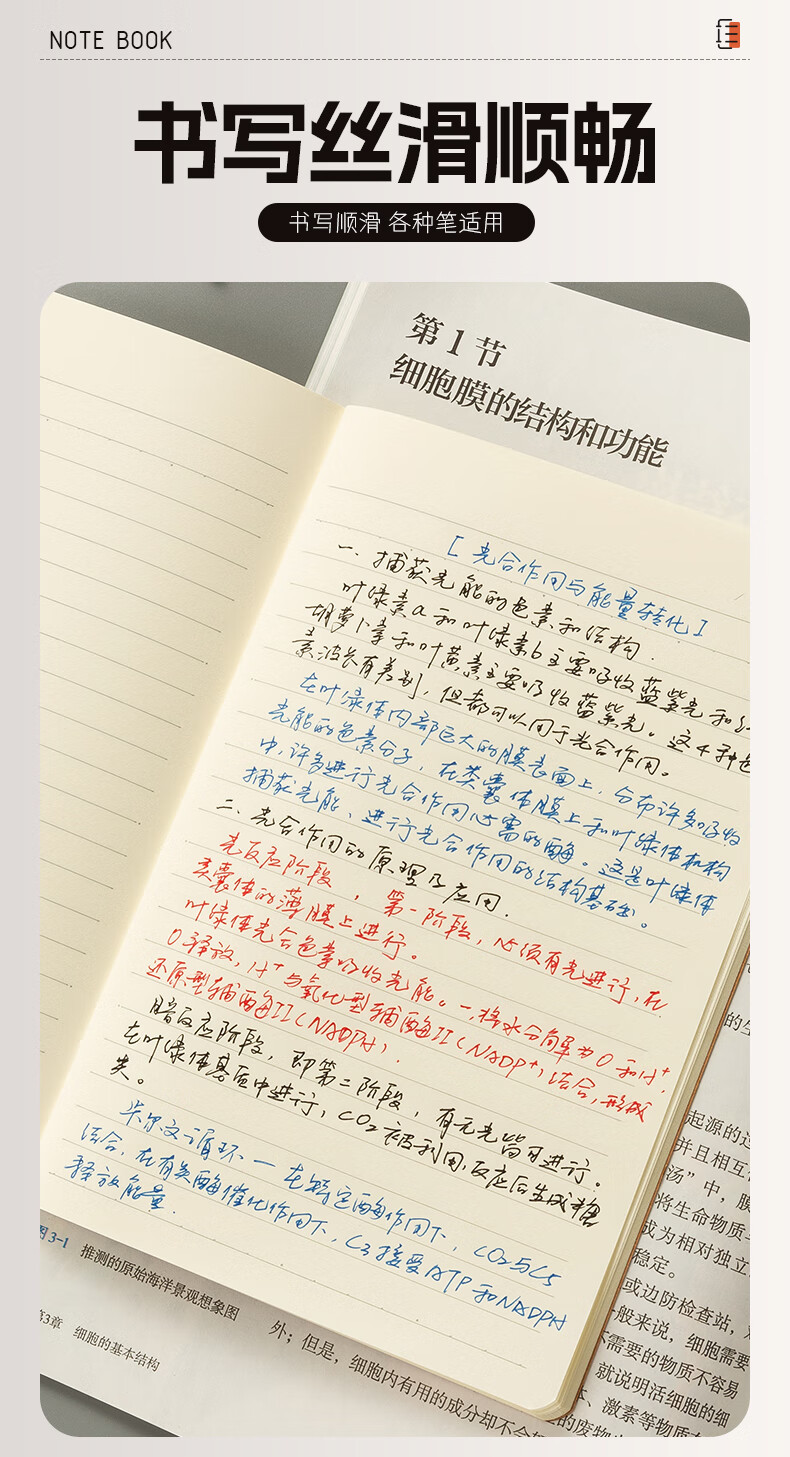 NOTE BOOK
书写丝滑顺畅
书写顺滑 各种笔适用
第1节
细胞膜的结构和功能
[光合作用与能量转化]
一. 捕获光能的色素和结构.
叶绿素a和叶绿素b主要吸收蓝紫光和
胡萝卜素和叶黄素主要吸收蓝紫光。这4种色
素波长有差别，但都可以用于光合作用。
在叶绿体内部巨大的膜表面上，分布许多吸收
光能的色素分子，在类囊体膜上和叶绿体机构
中，许多进行光合作用必需的酶。这是叶绿体
捕获光能、进行光合作用的结构基础。
二、光合作用的原理及应用.
光反应阶段，第一阶段，必须有光进行，在
类囊体的薄膜上进行。
叶绿体光合色素吸收光能。一、将水分解为O和H⁺,
O释放，H⁺与氧化型辅酶II(NADP⁺)结合，形成
还原型辅酶II(NADPH).
暗反应阶段，即第二阶段，有无光皆可进行。
在叶绿体基质中进行，CO2被利用,反应后生成糖
类。
卡尔文循环一在特定酶作用下，CO2与C5
结合，在有关酶催化作用下，C3接受ATP和NADPH
释放能量.
的生
起源的过
并且相互作
汤”中，膜
将生命物质与
成为相对独立
稳定。
或边防检查站，对
一般来说，细胞需要
需要的物质不容易
就说明活细胞的细
、激素等物质在
的废物
图3-1 推测的原始海洋景观想象图
第3章 细胞的基本结构
外；但是，细胞内有用的成分却不会